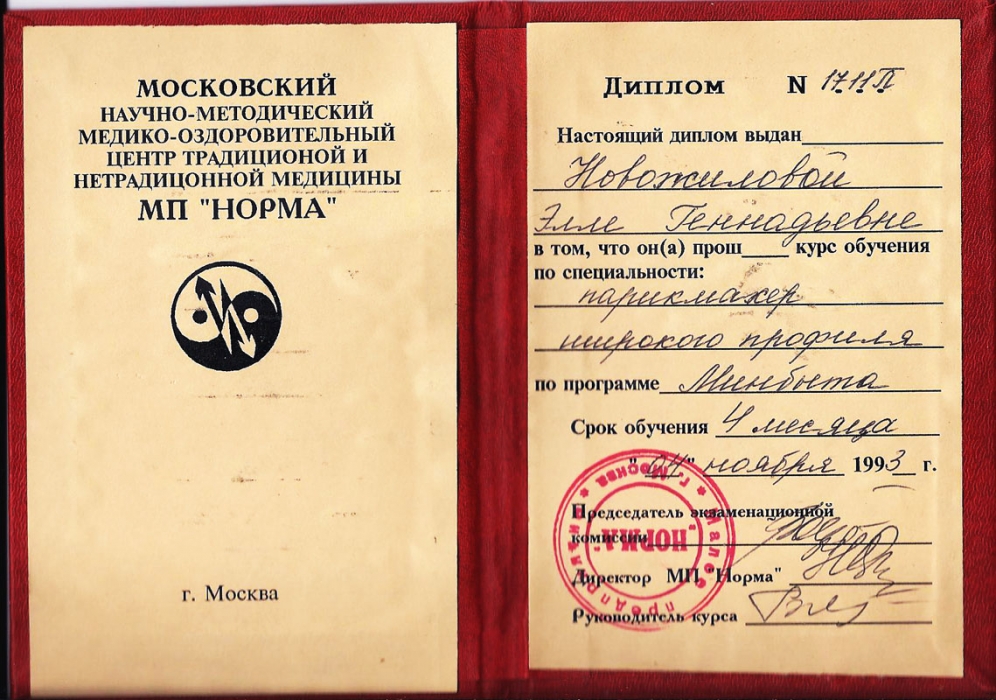 МОСКОВСКИЙ
НАУЧНО-МЕТОДИЧЕСКИЙ
МЕДИКО-ОЗДОРОВИТЕЛЬНЫЙ
ЦЕНТР ТРАДИЦИОНОЙ И
НЕТРАДИЦОННОЙ МЕДИЦИНЫ
МП "НОРМА"
г. Москва
Диплом N 1711П
Настоящий диплом выдан
Новожиловой
Элле Геннадьевне
в том, что он(а) прош____ курс обучения
по специальности:
парикмахер
широкого профиля
по программе Минбыта
Срок обучения 4 месяца
"04" ноября 1993 г.
Председатель экзаменационной
комиссии
Директор МП "Норма"
Руководитель курса
Малое предприятие * г. Москва *
"НОРМА"